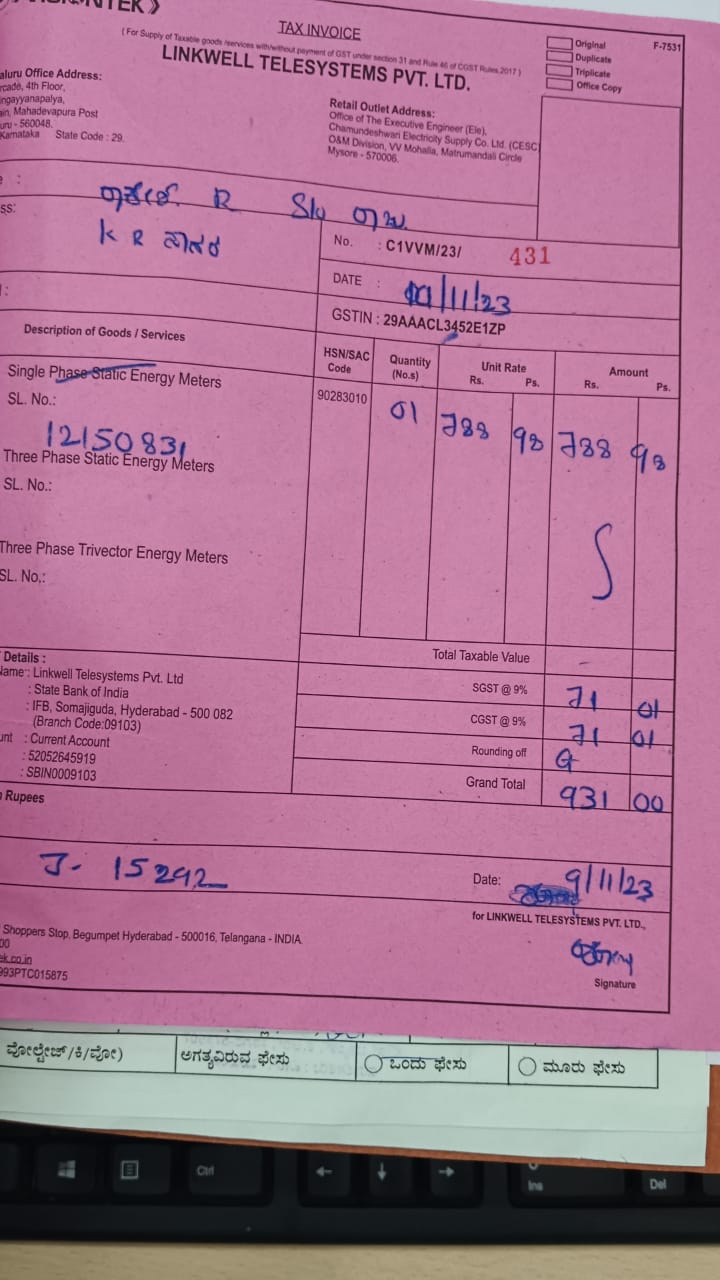 TAX INVOICE
( For Supply of Taxable goods /services with/without payment of GST under section 31 and Rule 46 of CGST Rules 2017 )
LINKWELL TELESYSTEMS PVT. LTD.
Original
Duplicate
Triplicate
Office Copy
F-7531
aluru Office Address:
rcade, 4th Floor,
ngayyanapalya,
ain, Mahadevapura Post
uru - 560048.
Karnataka State Code : 29
Retail Outlet Address:
Office of The Executive Engineer (Ele),
Chamundeshwari Electricity Supply Co. Ltd. (CESC)
O&M Division, VV Mohalla, Matrumandali Circle
Mysore - 570006.
R S/o ರಾಜು
ss:
K R ನಗರ
No. : C1VVM/23/ 431
DATE : /11/23
GSTIN : 29AAACL3452E1ZP
Description of Goods / Services
HSN/SAC Code
Quantity (No.s)
Unit Rate Rs. Ps.
Amount Rs. Ps.
Single Phase Static Energy Meters
90283010 01 788 98 788 98
SL. No.:
12150831
Three Phase Static Energy Meters
SL. No.:
Three Phase Trivector Energy Meters
SL. No.:
Total Taxable Value -
SGST @ 9% 71 01
CGST @ 9% 71 01
Rounding off
Grand Total 931 00
Details :
Name : Linkwell Telesystems Pvt. Ltd
: State Bank of India
: IFB, Somajiguda, Hyderabad - 500 082
(Branch Code:09103)
unt : Current Account
: 52052645919
: SBIN0009103
Rupees
J- 15292
Date: 9/11/23
for LINKWELL TELESYSTEMS PVT. LTD.,
Signature
Shoppers Stop, Begumpet Hyderabad - 500016, Telangana - INDIA.
00
ek.co.in
993PTC015875
ವೋಲ್ಟೇಜ್/ಕಿ/ವೋ)
ಅಗತ್ಯವಿರುವ ಫೇಸು
ಒಂದು ಫೇಸು
ಮೂರು ಫೇಸು
Ctrl
Ins
Del